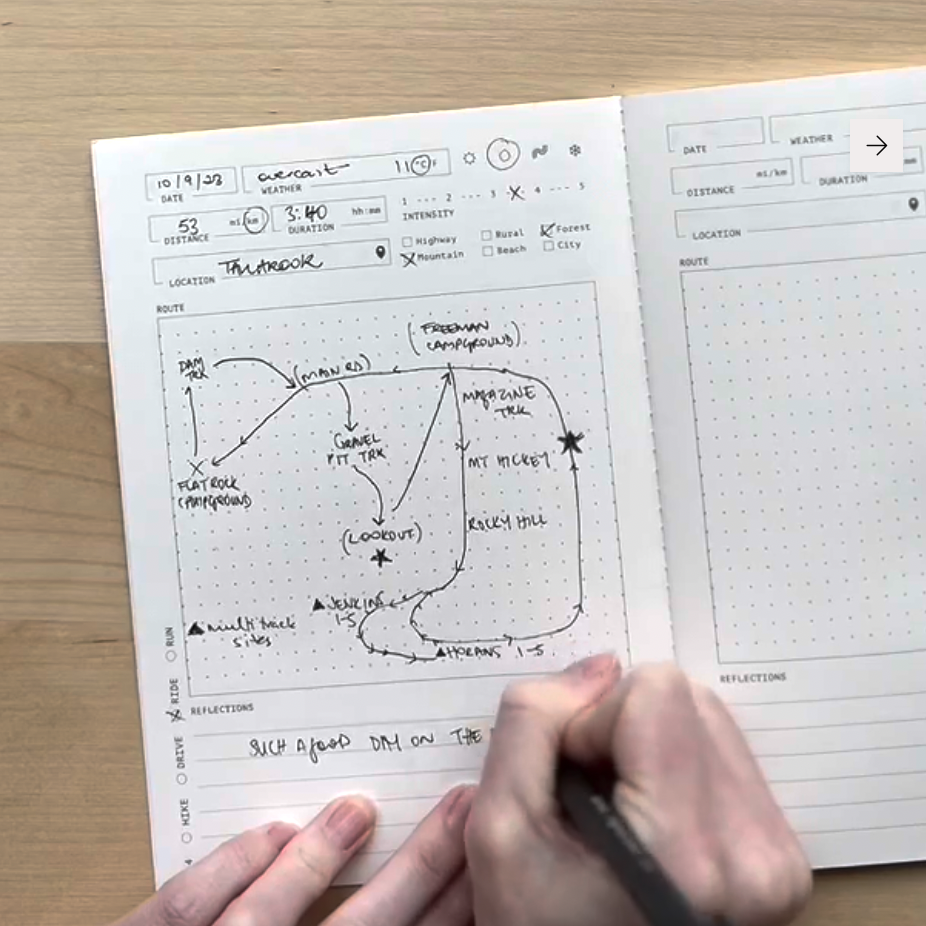 10/9/23
DATE
overcast 11 °C F
WEATHER
53 mi/km
DISTANCE
3:40 hh:mm
DURATION
1 --- 2 --- 3 -X- 4 --- 5
INTENSITY
LOCATION
Highway Rural Forest
Mountain Beach City
ROUTE
DAM
TRK
(MAIN RD)
(FREEMAN
CAMPGROUND)
MAGAZINE
TRK
GRAVEL
PIT TRK
MT HICKEY
FLAT ROCK
CAMPGROUND
(LOOKOUT)
ROCKY HILL
▲ JENKINS
1-5
▲ multi track
sites
▲ HORANS 1-5
RUN
RIDE
DRIVE
HIKE
REFLECTIONS
SUCH A GOOD DAY ON THE
→
DATE
WEATHER
mi/km
DISTANCE
DURATION
LOCATION
ROUTE
REFLECTIONS